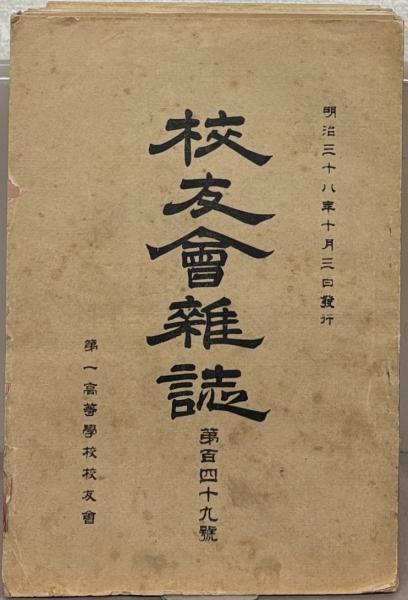 明治三十八年十月三日發行
校友會雜誌
第百四十九號
第一高等學校校友會